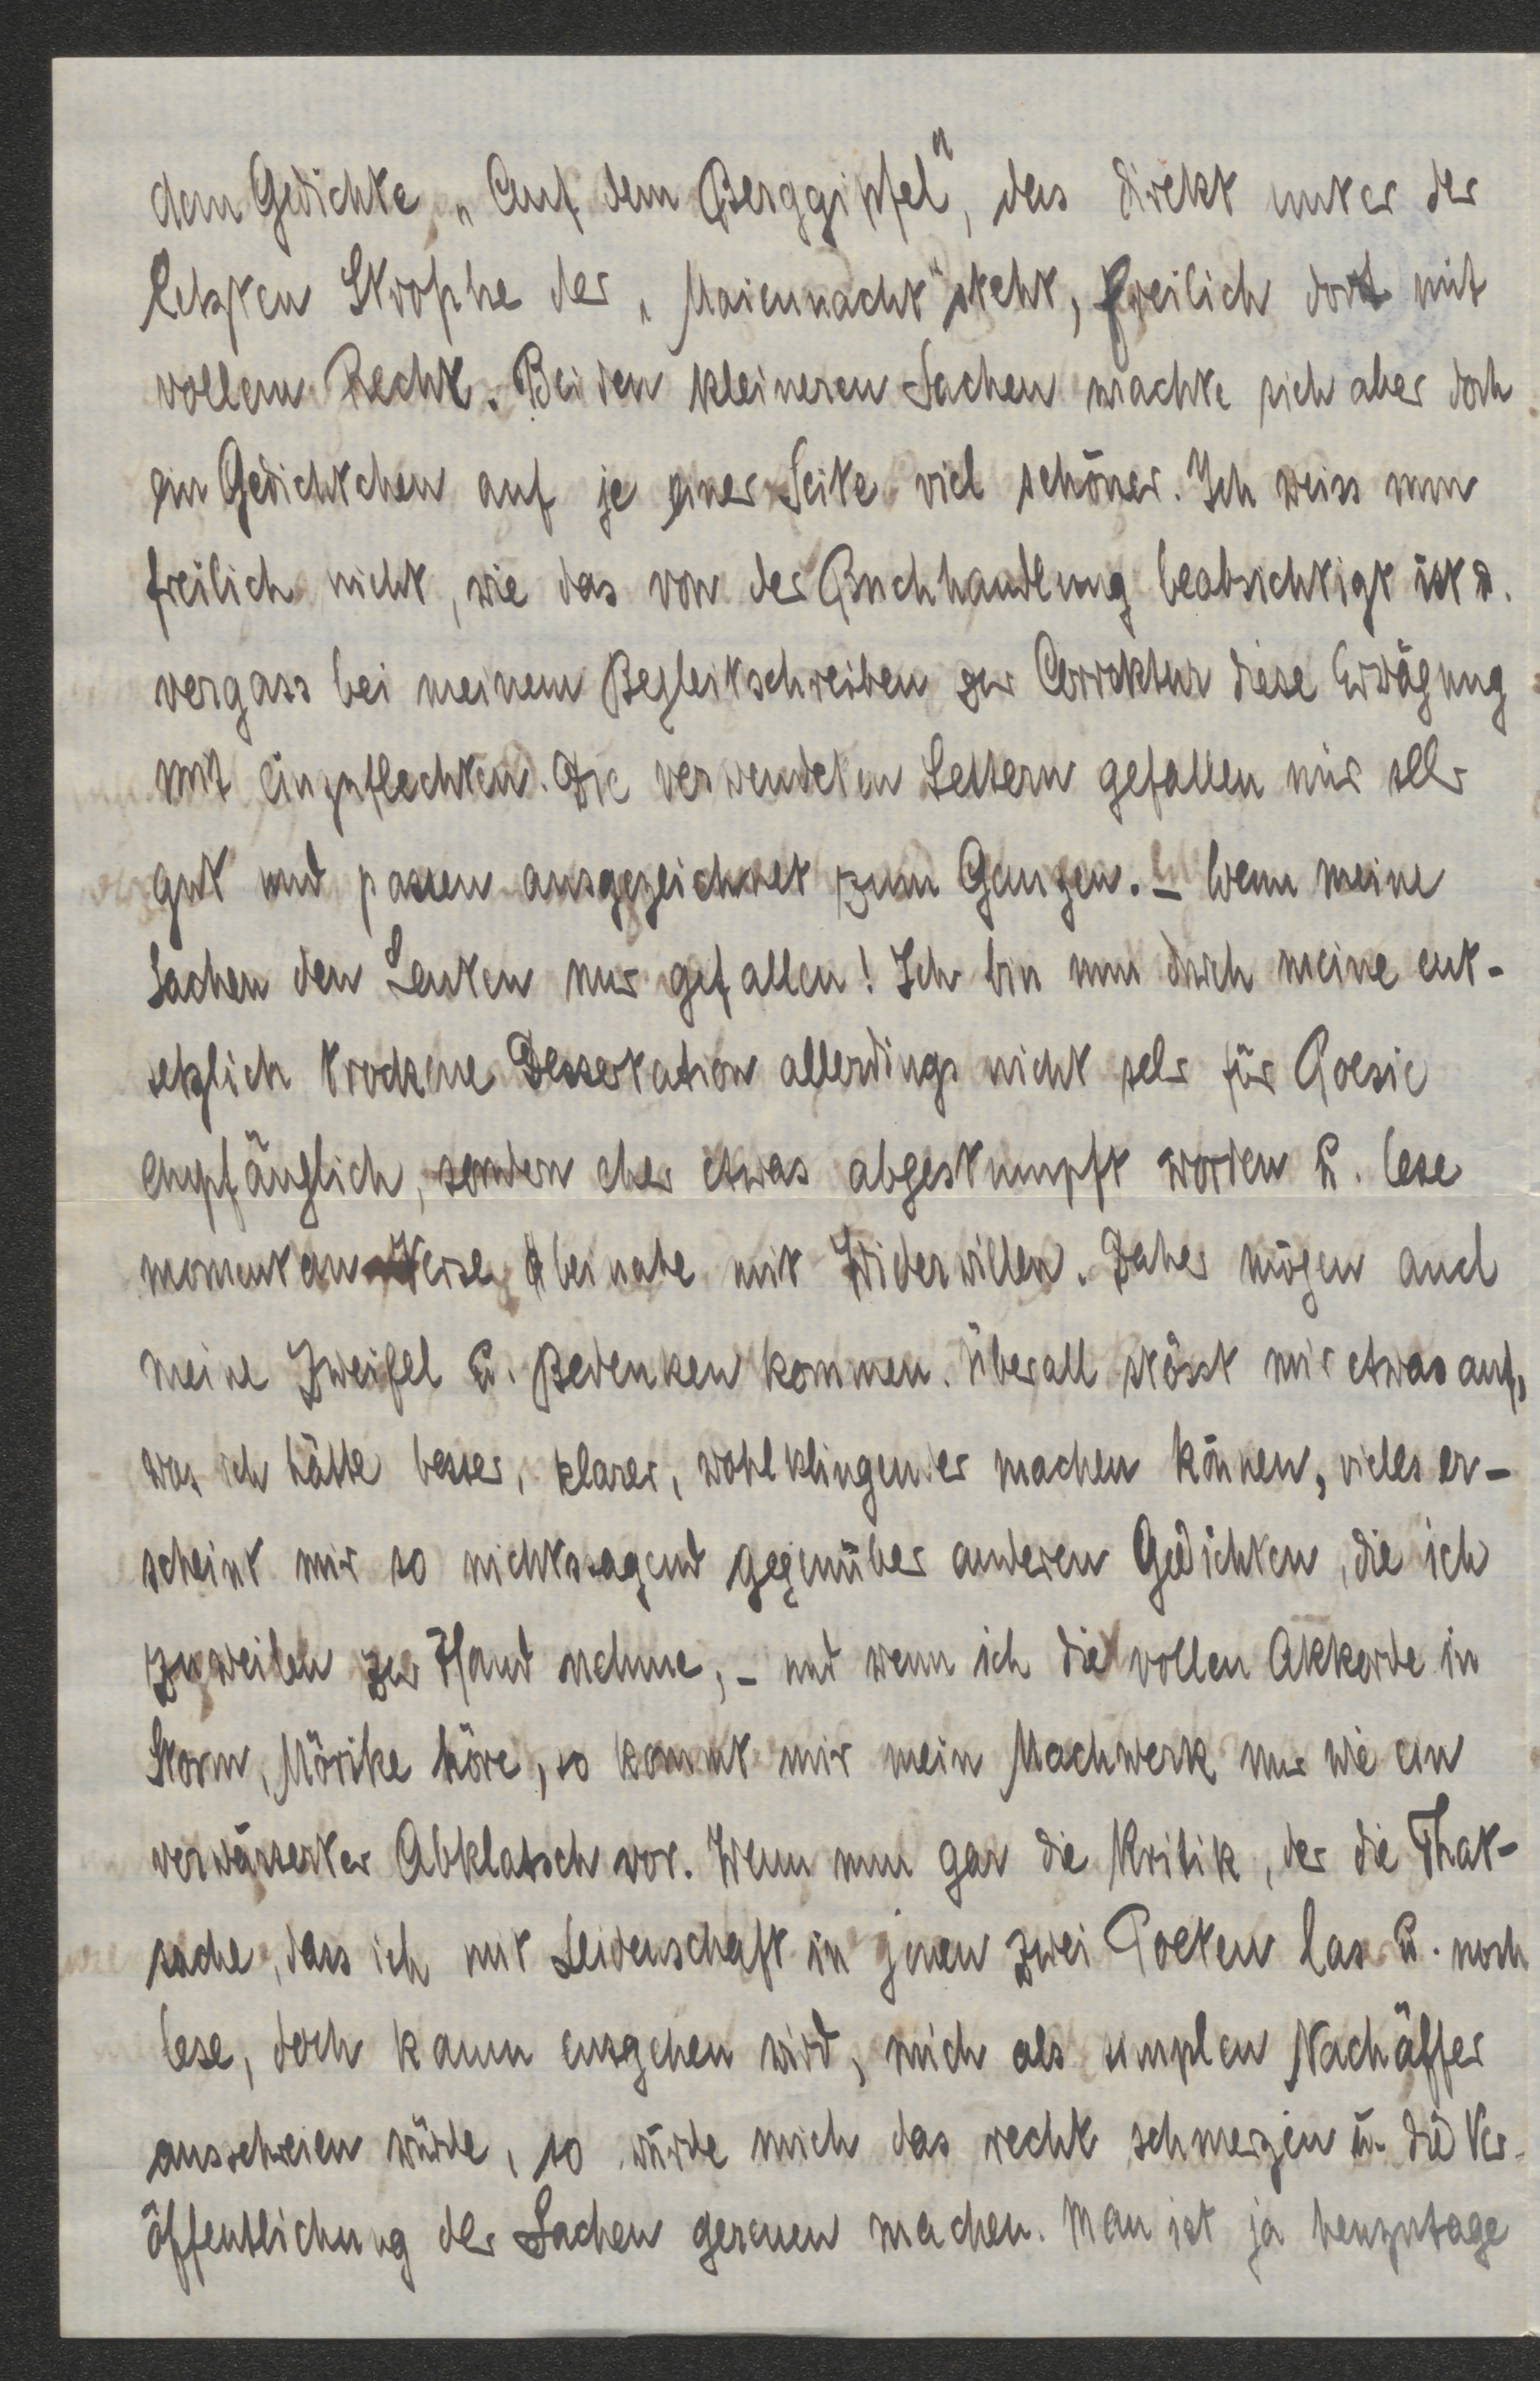 dem Gedichte „Auf dem Berggipfel“, das direkt unter der
letzten Strophe der „Maiennacht“ steht, freilich dort mit
vollem Recht. Bei den kleineren Sachen machte sich aber doch
ein Gedichtchen auf je einer Seite viel schöner. Ich weiss nun
freilich nicht, wie das von der Buchhandlung beabsichtigt ist u.
vergass bei meinem Begleitschreiben zur Correktur diese Erwägung
mit einzuflechten. Die verwendeten Lettern gefallen mir sehr
gut und passen ausgezeichnet zum Ganzen. – Wenn meine
Sachen den Leuten nur gefallen! Ich bin nun durch meine ent-
setzlich trockene Dissertation allerdings nicht sehr für Poesie
empfänglich, sondern eher etwas abgestumpft worden u. lese
momentan Verse beinahe mit Widerwillen. Daher mögen auch
meine Zweifel u. Bedenken kommen. Überall stösst mir etwas auf,
was ich hätte besser, klarer, wohlklingender machen können, vieles er-
scheint mir so nichtssagend gegenüber anderen Gedichten, die ich
zuweilen zur Hand nehme, – und wenn ich die vollen Akkorde in
Storm, Mörike höre, so kommt mir mein Machwerk nur wie ein
verwässerter Abklatsch vor. Wenn nun gar die Kritik, der die That-
sache, dass ich mit Leidenschaft in jenen zwei Poeten las u. noch
lese, doch kaum entgehen wird, mich als simplen Nachäffer
ausschreien würde, so würde mich das recht schmerzen u. die Ver-
öffentlichung der Sachen gereuen machen. Man ist ja heuzutage